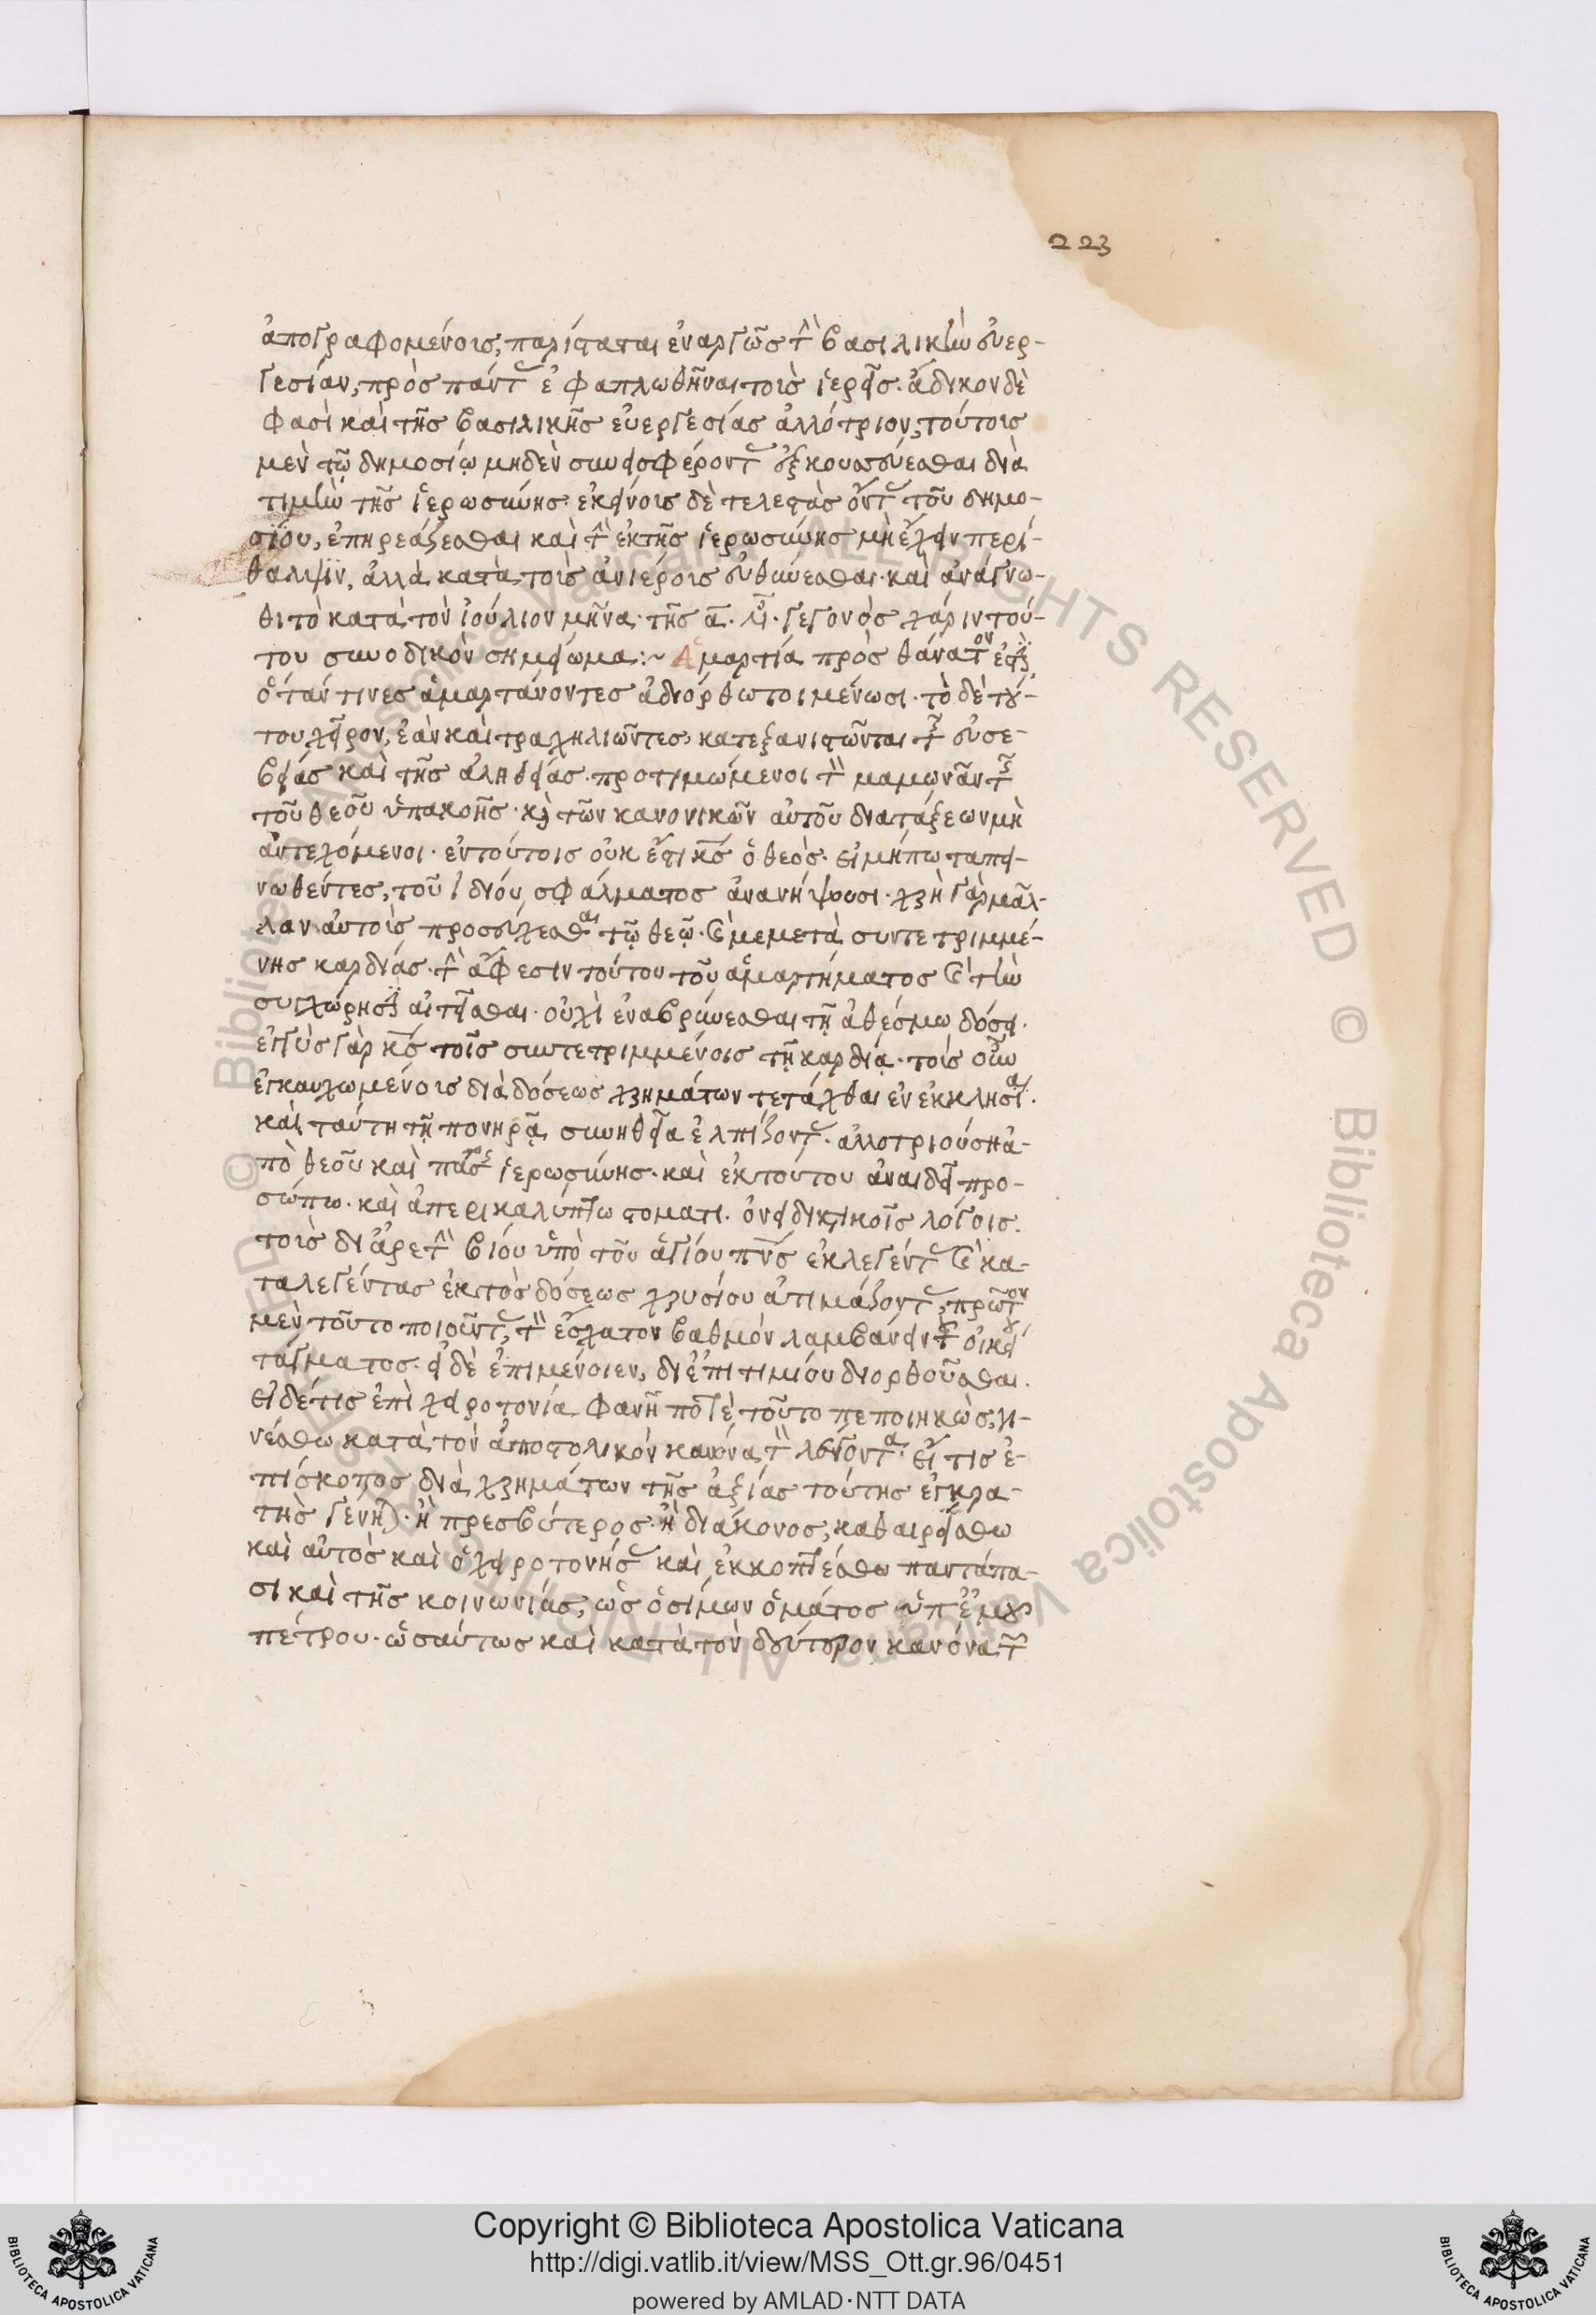 223
ἀπογραφομένοις, παρίσταται ἐναργῶς τὴν βασιλικὴν εὐερ-
γεσίαν, πρὸς πάντας ἐφαπλωθῆναι τοὺς ἱερεῖς. ἄδικον δὲ
φασὶ καὶ τῆς βασιλικῆς εὐεργεσίας ἀλλότριον, τούτοις
μὲν τῷ δημοσίῳ μηδὲν συνεισφέροντας ἐξκουσσεύεσθαι διὰ
τιμὴν τῆς ἱερωσύνης. ἐκείνοις δὲ τελεστὰς ὄντας τοῦ δημο-
σίου, ἐπηρεάζεσθαι καὶ τὴν ἐκ τῆς ἱερωσύνης μὴ ἔχειν περί-
θαλψιν, ἀλλὰ κατὰ τοὺς ἀνιέροις εὐθύνεσθαι. καὶ ἀνάγνω-
θι τὸ κατὰ τὸν ἰούλιον μῆνα τῆς α. γεγονὸς χάριν τού-
του συνοδικὸν σημείωμα :~ Ἁμαρτία πρὸς θάνατον ἐστὶν
ὅταν τινες ἁμαρτάνοντες ἀδιόρθωτοι μένωσι. τὸ δὲ τού-
του χεῖρον, ἐὰν καὶ τραχηλιῶντες, κατεξανιστῶνται τῆς εὐσε-
βείας καὶ τῆς ἀληθείας. προτιμώμενοι τὸν μαμωνᾶν τῆς
τοῦ θεοῦ ὑπακοῆς. καὶ τῶν κανονικῶν αὐτοῦ διατάξεων μὴ
ἀντεχόμενοι. ἐν τούτοις οὐκ ἔστι κς ὁ θεὸς. εἰ μήπω ταπει-
νωθέντες, τοῦ ἰδίου σφάλματος ἀνανήψωσι. χρὴ γὰρ μᾶλ-
λον αὐτοὺς προσεύχεσθαι τῷ θεῷ. καὶ μεμετὰ συντετριμμέ-
νης καρδίας. τὴν ἄφεσιν τούτου τοῦ ἁμαρτήματος καὶ τὴν
συγχώρησιν αἰτεῖσθαι. οὐχὶ ἐναβρύνεσθαι τῇ ἀθέσμω δόσει.
ἐγγὺς γὰρ κς τοῖς συντετριμμένοις τῇ καρδίᾳ. τοὺς οὖν
ἐγκαυχωμένοις διὰ δόσεως χρημάτων τετάχθαι ἐν ἐκκλησία.
καὶ ταύτη τῇ πονηρᾷ συνηθεία ἐλπίζοντας. ἀλλοτριούση ἀ-
πὸ θεοῦ καὶ πάσης ἱερωσύνης. καὶ ἐκ τούτου ἀναιδεῖ προ-
σώπω. καὶ ἀπερικαλύπτω στοματι. ὀνειδιστικοῖς λόγοις.
τοὺς δι ἀρετὴν βίου ὑπὸ τοῦ ἁγίου πνς ἐκλεγέντας καὶ κα-
ταλεγέντας ἐκτὸς δόσεως χρυσίου ἀτιμάζοντας, πρῶτον
μὲν τοῦτο ποιοῦντας, τὸν ἔσχατον βαθμὸν λαμβάνειν τοῦ οἰκείου
τάγματος. εἰ δὲ ἐπιμένοιεν, δι ἐπιτιμίου διορθοῦσθαι.
εἰ δέ τις ἐπὶ χειροτονία φανῆ ποτὲ τοῦτο πεποιηκὼς, γι-
νέσθω κατὰ τὸν ἀποστολικὸν κανόνα τὸν λέγοντα. εἴ τις ἐ-
πίσκοπος διὰ χρημάτων τῆς ἀξίας τούτης ἐγκρα-
τὴς γένηται. ἢ πρεσβύτερος. ἢ διάκονος, καθαιρείσθω
καὶ αὐτὸς καὶ ὁ χειροτονήσας καὶ ἐκκοπτέσθω παντάπα-
σι καὶ τῆς κοινωνίας, ὡς ὁ σίμων ὁ μάγος ὑπ ἐμοῦ
πέτρου. ὡσαύτως καὶ κατὰ τὸν δεύτερον κανόνα τῆς
Copyright © Biblioteca Apostolica Vaticana
http://digi.vatlib.it/view/MSS_Ott.gr.96/0451
powered by AMLAD·NTT DATA
BIBLIOTECA APOSTOLICA VATICANA
BIBLIOTECA APOSTOLICA VATICANA
© Biblioteca Apostolica Vaticana ALL RIGHTS RESERVED © Biblioteca Apostolica Vaticana ALL RIGHTS RESERVED